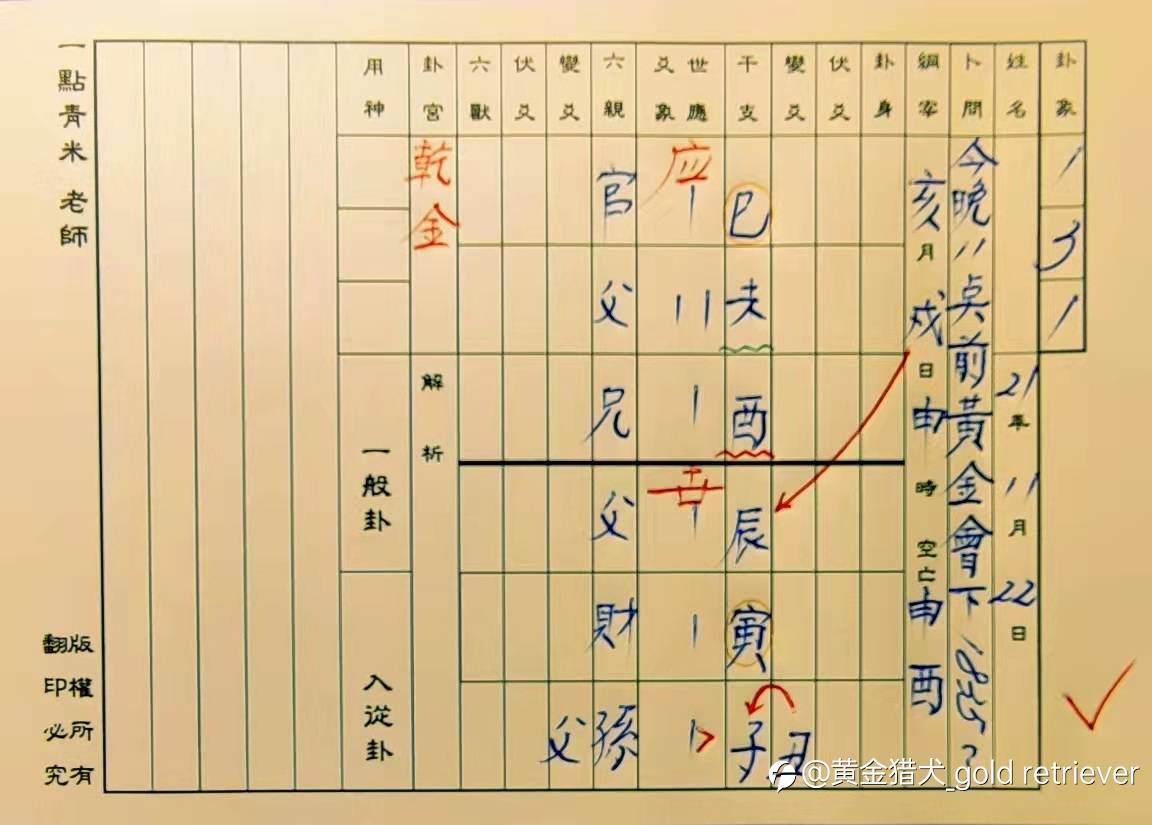 卦象
1
3
1
姓名
21年11月22日
卜問
今晚11点前黃金會下
綱宰
亥月戌日申時
空亡申酉
卦身
伏爻
變爻
干支
巳
未
酉
辰
寅
子 丑
世應
爻象
应
世
六親
官
父
兄
父
財
孫
變爻
父
伏爻
六獸
卦宮
乾金
解析
用神
一般卦
入從卦
一點青米 老師
版權所有
翻印必究
@黄金猎犬_gold retriever